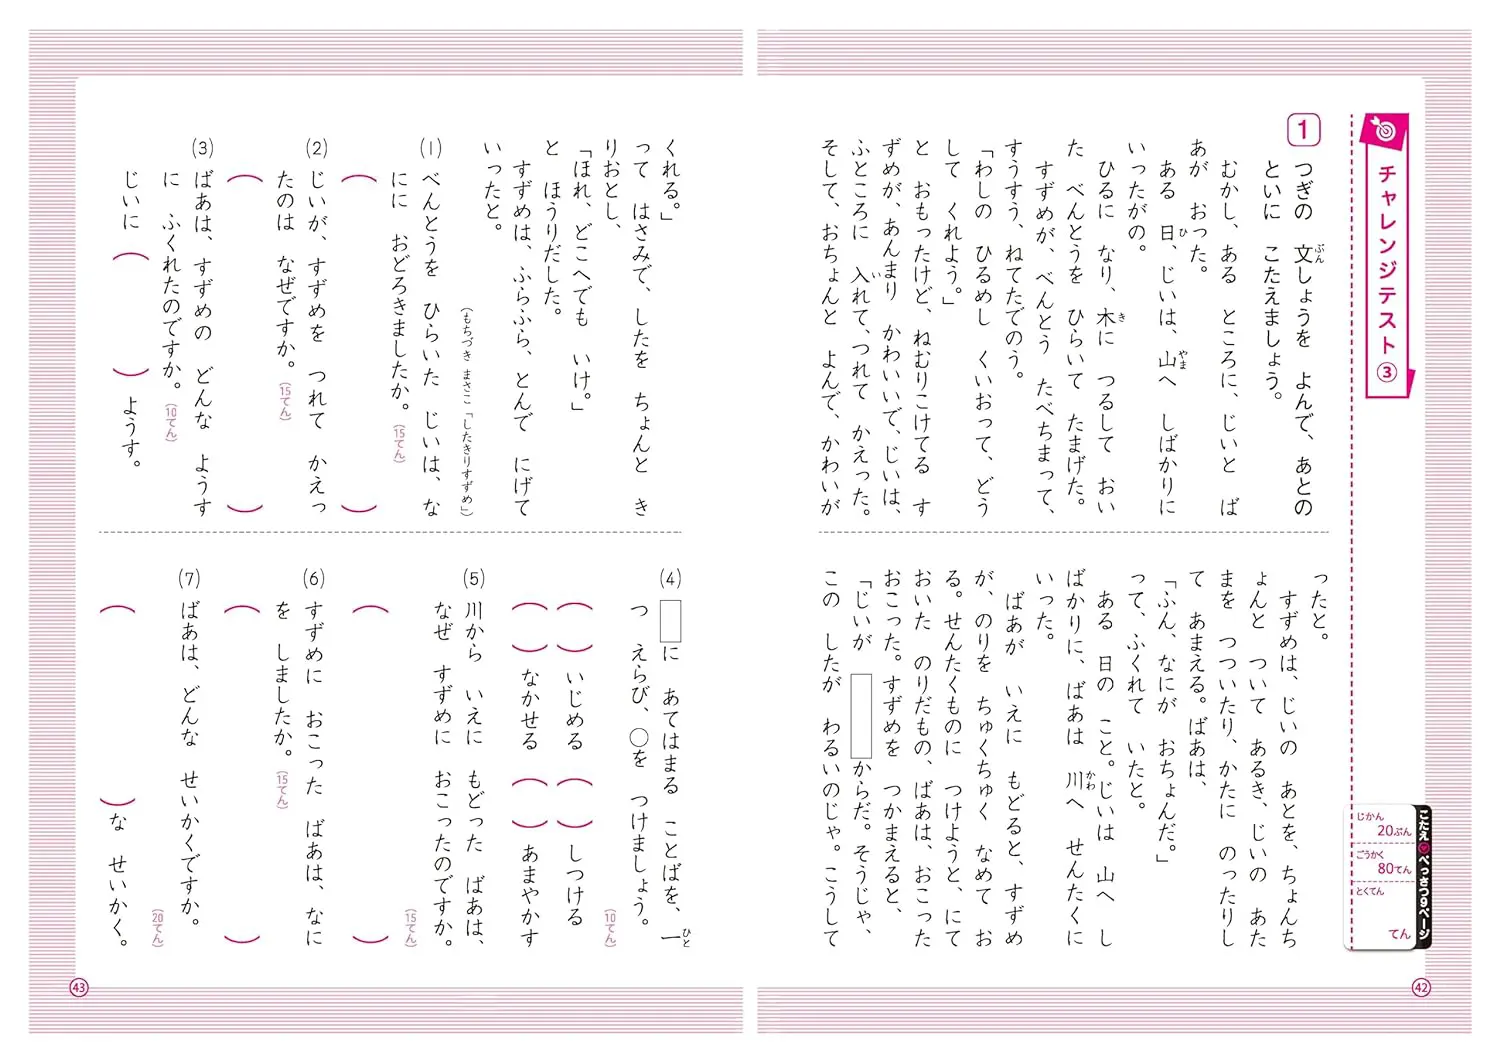 チャレンジテスト③
1
つぎの 文しょうを よんで、あとの
といに こたえましょう。
むかし、ある ところに、じいと ば
あが おった。
ある 日、じいは、山へ しばかりに
いったがの。
ひるに なり、木に つるして おい
た べんとうを ひらいて たまげた。
すずめが、べんとう たべちまって、
すうすう、ねてたでのう。
「わしの ひるめし くいおって、どう
して くれよう。」
と おもったけど、ねむりこけてる す
ずめが、あんまり かわいいで、じいは、
ふところに 入れて、つれて かえった。
そして、おちょんと よんで、かわいが
ったと。
すずめは、じいの あとを、ちょんち
ょんと ついて あるき、じいの あた
まを つついたり、かたに のったりし
て あまえる。ばあは、
「ふん、なにが おちょんだ。」
って、ふくれて いたと。
ある 日の こと。じいは 山へ し
ばかりに、ばあは 川へ せんたくに
いった。
ばあが いえに もどると、すずめ
が、のりを ちゅくちゅく なめて お
る。せんたくものに つけようと、にて
おいた のりだもの、ばあは、おこった
おこった。すずめを つかまえると、
「じいが □からだ。そうじゃ、
この したが わるいのじゃ。こうして
くれる。」
って はさみで、したを ちょんと き
りおとし、
「ほれ、どこへでも いけ。」
と ほうりだした。
すずめは、ふらふら、とんで にげて
いったと。
(もちづき まさこ「したきりすずめ」)
(1) べんとうを ひらいた じいは、な
にに おどろきましたか。(15てん)
( )
(2) じいが、すずめを つれて かえっ
たのは なぜですか。(15てん)
( )
(3) ばあは、すずめの どんな ようす
に ふくれたのですか。(10てん)
じいに ( ) ようす。
(4) □に あてはまる ことばを、一
つ えらび、○を つけましょう。(10てん)
( ) いじめる ( ) しつける
( ) なかせる ( ) あまやかす
(5) 川から いえに もどった ばあは、
なぜ すずめに おこったのですか。(15てん)
( )
(6) すずめに おこった ばあは、なに
を しましたか。(15てん)
( )
(7) ばあは、どんな せいかくですか。(20てん)
( )な せいかく。
こたえ べっさつ9ページ
じかん 20ぷん
ごうかく 80てん
とくてん てん
42
43